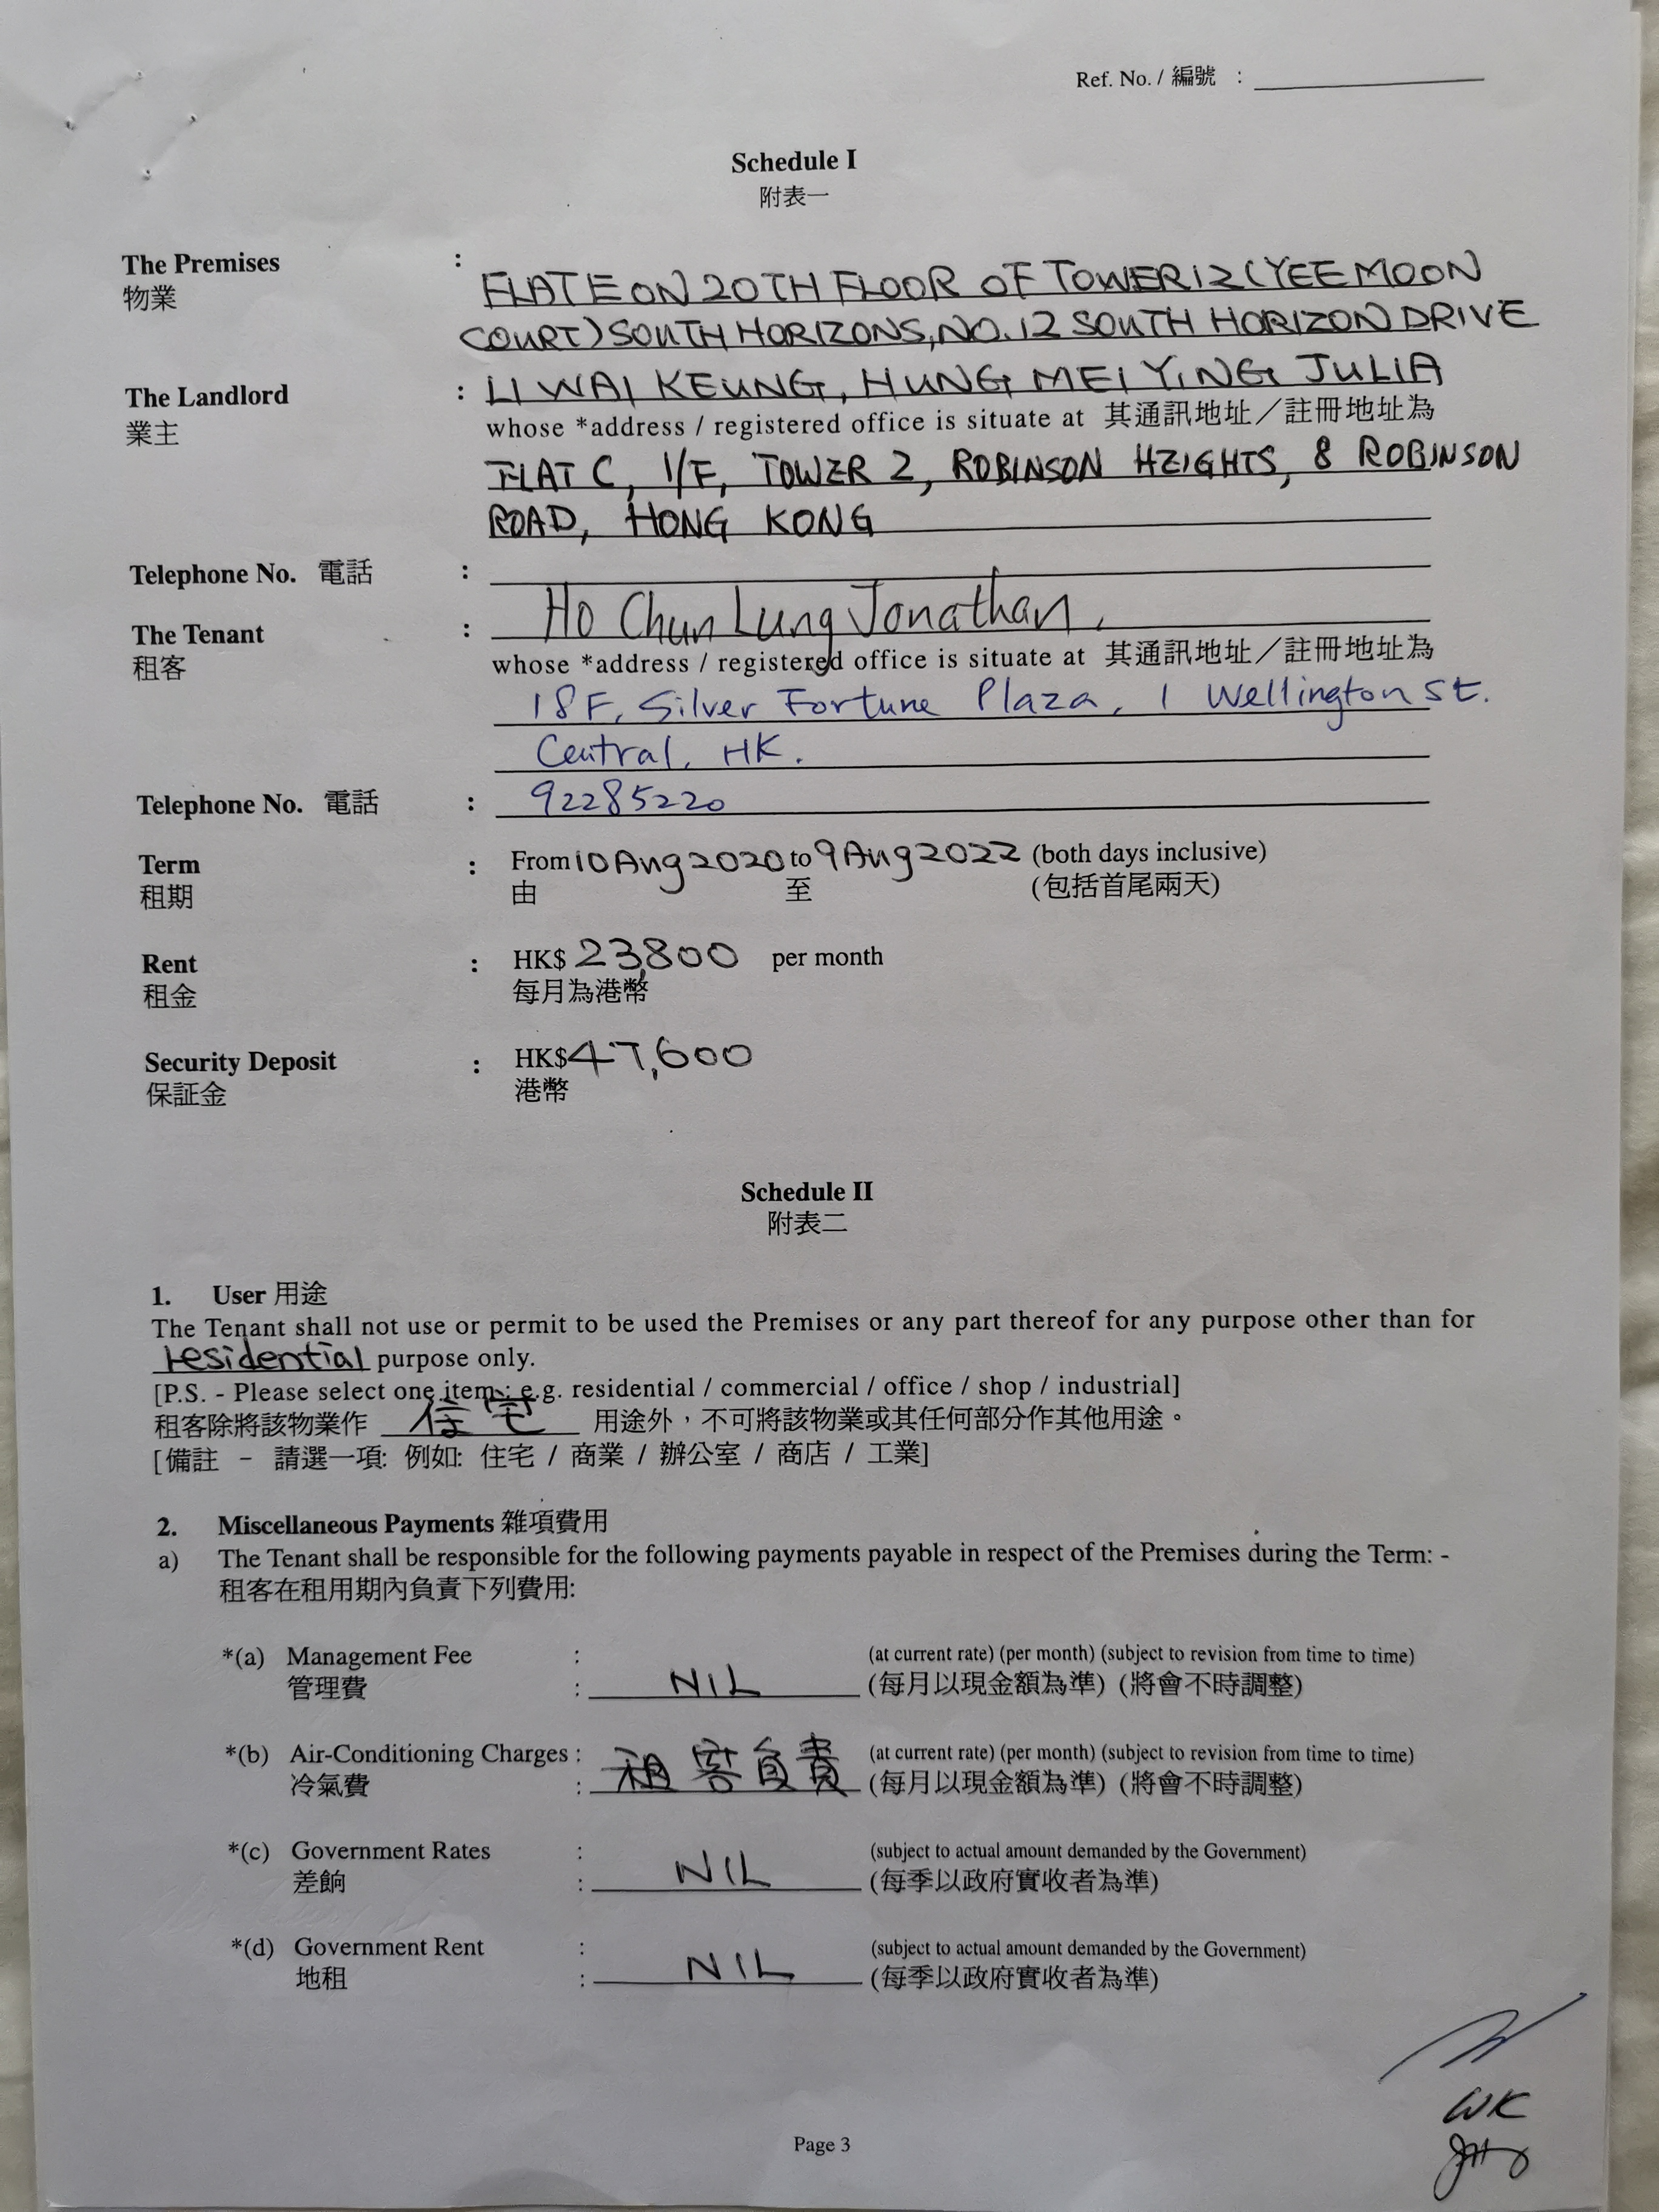 Ref. No. / 編號 :
Schedule I
附表一
The Premises :
物業
FLAT E ON 20TH FLOOR OF TOWER 12 (YEE MOON
COURT) SOUTH HORIZONS, NO. 12 SOUTH HORIZON DRIVE
The Landlord : LI WAI KEUNG, HUNG MEI YING JULIA
業主
whose *address / registered office is situate at 其通訊地址／註冊地址為
FLAT C, 1/F, TOWER 2, ROBINSON HEIGHTS, 8 ROBINSON
ROAD, HONG KONG
Telephone No. 電話 :
The Tenant : Ho Chun Lung Jonathan,
租客
whose *address / registered office is situate at 其通訊地址／註冊地址為
18F, Silver Fortune Plaza, 1 Wellington St.
Central, HK.
Telephone No. 電話 : 92285220
Term : From 10 Aug 2020 to 9 Aug 2022 (both days inclusive)
租期 由 至 (包括首尾兩天)
Rent : HK$ 23,800 per month
租金 每月為港幣
Security Deposit : HK$ 47,600
保証金 港幣
Schedule II
附表二
1. User 用途
The Tenant shall not use or permit to be used the Premises or any part thereof for any purpose other than for
residential purpose only.
[P.S. - Please select one item : e.g. residential / commercial / office / shop / industrial]
租客除將該物業作 住宅 用途外，不可將該物業或其任何部分作其他用途。
[備註 - 請選一項: 例如: 住宅 / 商業 / 辦公室 / 商店 / 工業]
2. Miscellaneous Payments 雜項費用
a) The Tenant shall be responsible for the following payments payable in respect of the Premises during the Term: -
租客在租用期內負責下列費用:
*(a) Management Fee : (at current rate) (per month) (subject to revision from time to time)
管理費 : NIL (每月以現金額為準) (將會不時調整)
*(b) Air-Conditioning Charges : 租客負責 (at current rate) (per month) (subject to revision from time to time)
冷氣費 : (每月以現金額為準) (將會不時調整)
*(c) Government Rates : (subject to actual amount demanded by the Government)
差餉 : NIL (每季以政府實收者為準)
*(d) Government Rent : (subject to actual amount demanded by the Government)
地租 : NIL (每季以政府實收者為準)
WK
Page 3